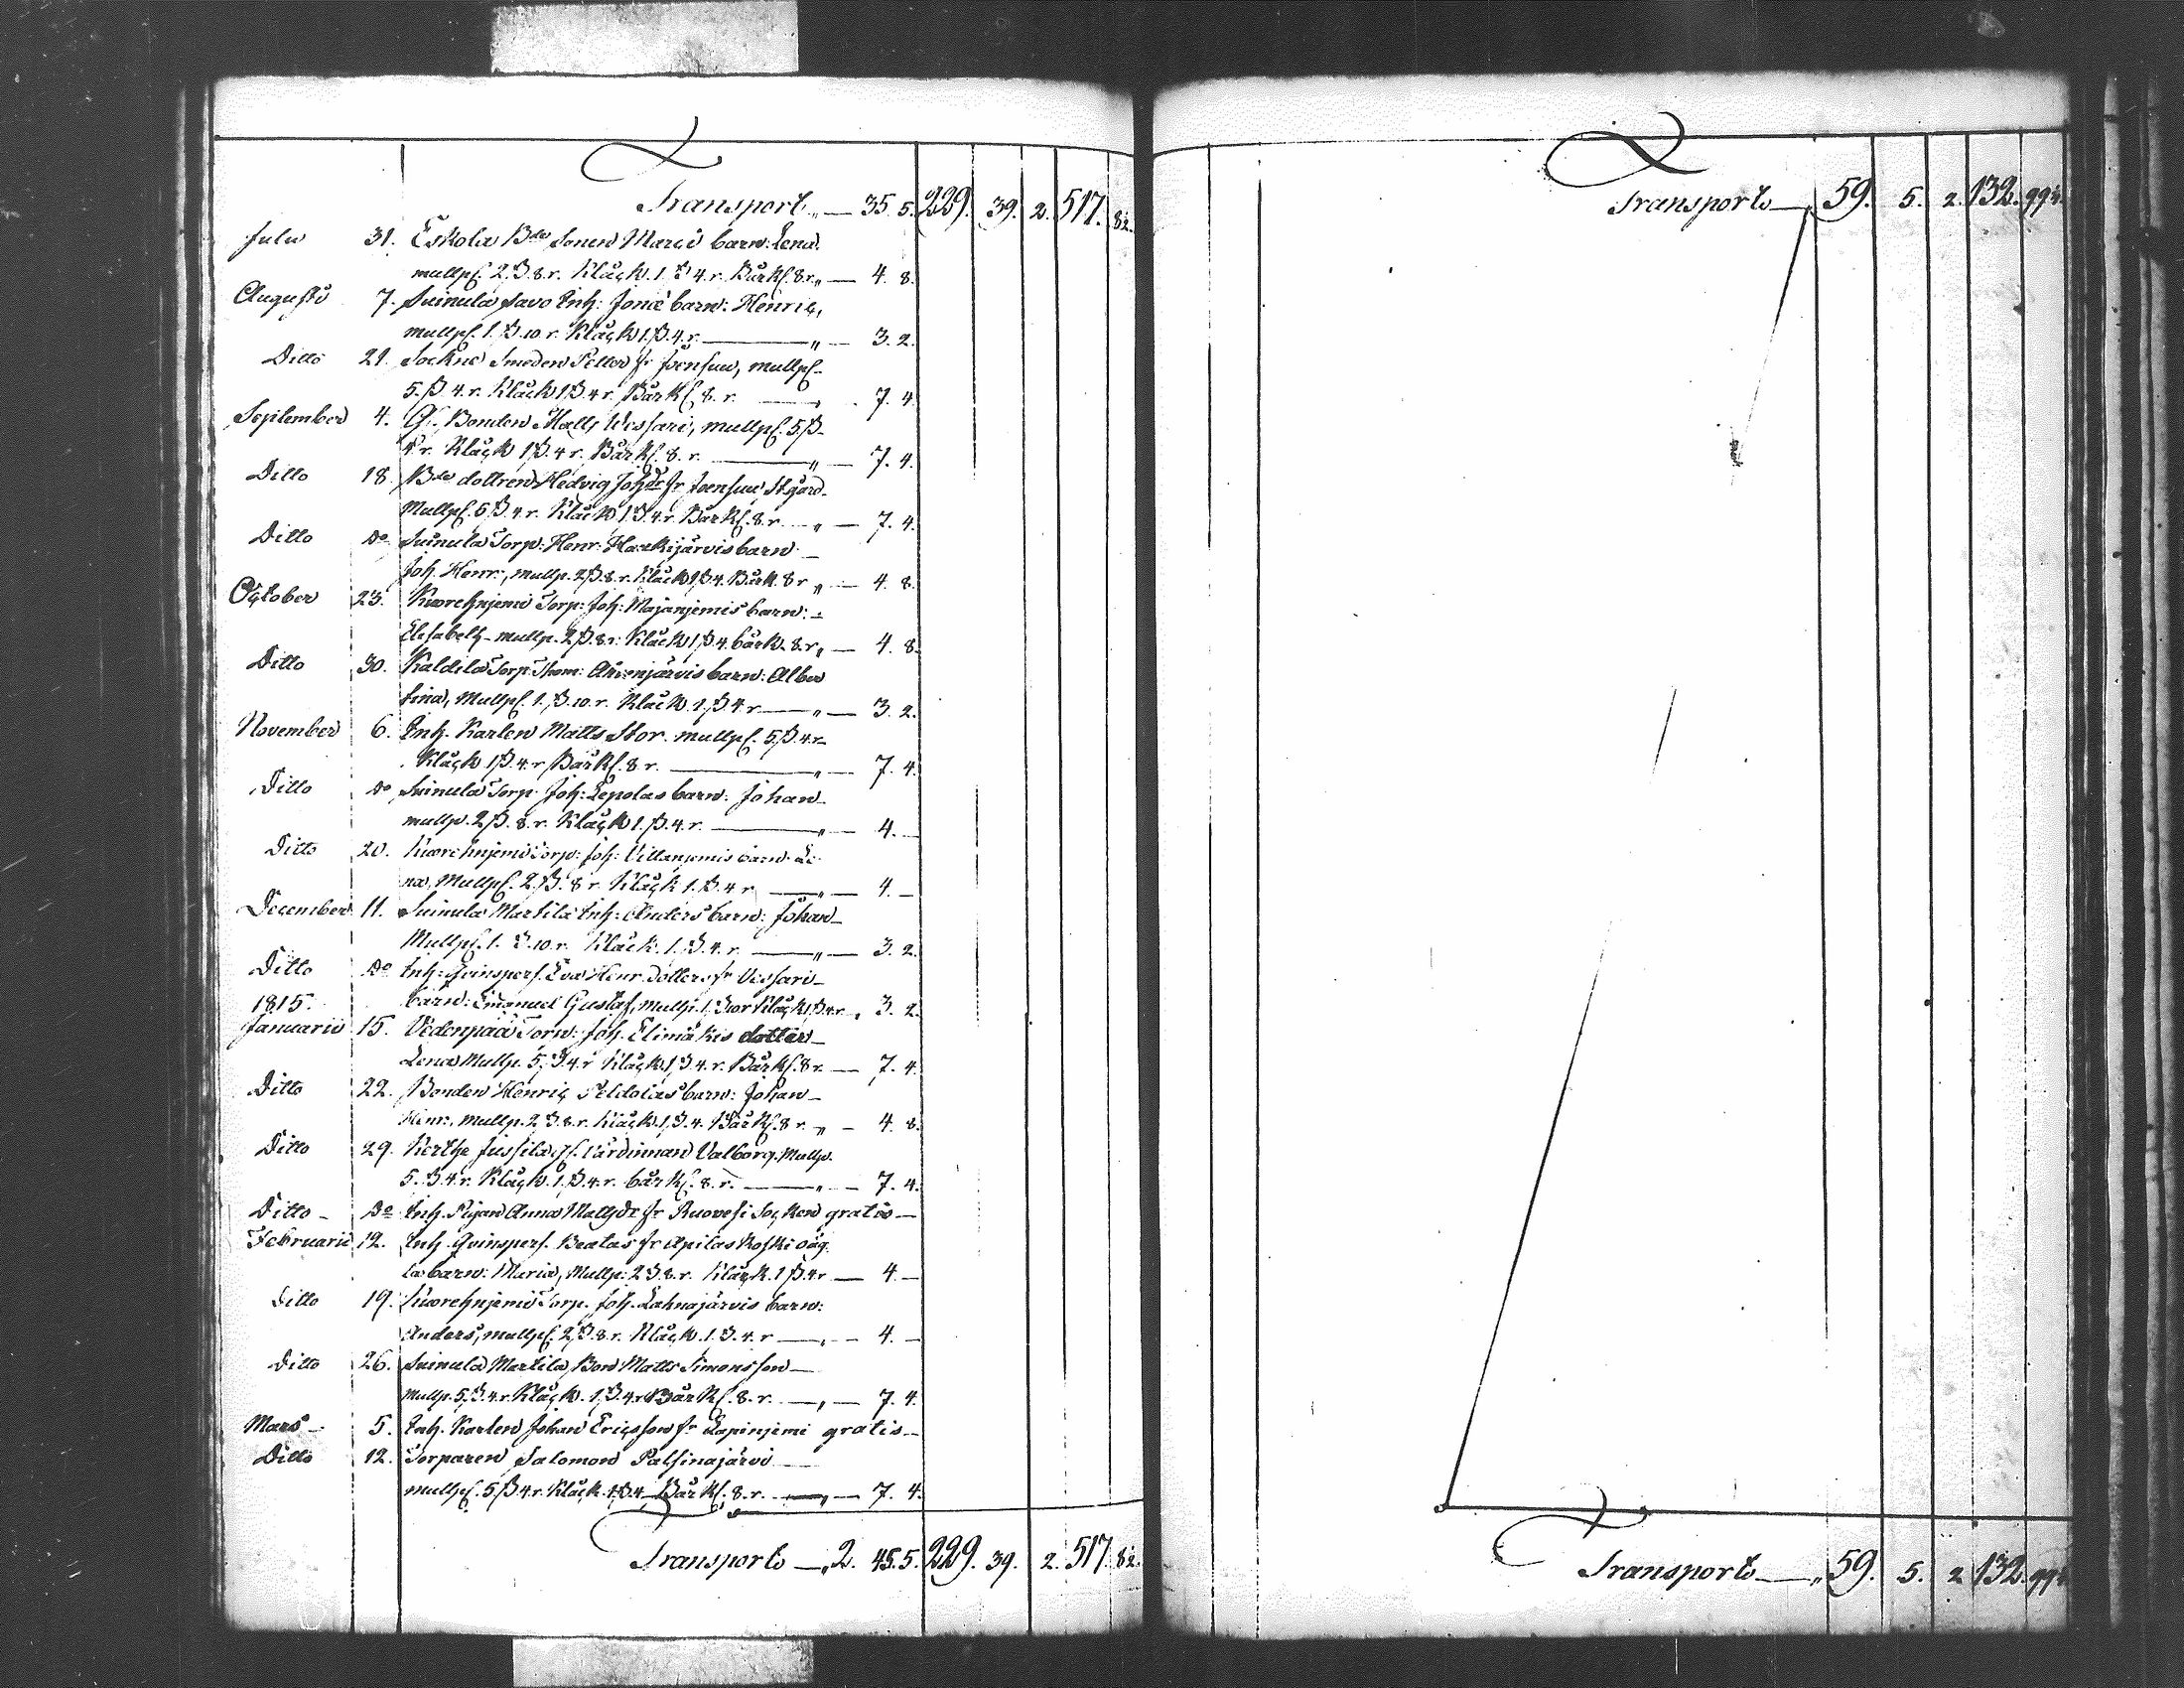 Transport „ — 35. 5. 229. 39. 2. 517. 82.
Julii 31. Eskola Bde Sonen Marci barn: Lena
mullpf. 2. ß. 8. r. Kläck. 1. ß 4. r. Bårkl. 8. r. „ — 4. 8.
Augusti 7. Suinula Savo Inh: Jonæ barn: Henric,
mullpf. 1. ß. 10 r. Kläck 1. ß. 4. r. — „ — 3. 2.
Ditto 21. Sockne Smeden Petter fr Ivensuu, mullpf.
5. ß 4. r. Kläck 1 ß 4 r. Bårkl. 8. r. — 7. 4.
September 4. Gl. Bonden Matts Wessari, mullpf. 5. ß
4 r. Kläck 1 ß. 4 r. Bårkl. 8. r. — „ — 7. 4.
Ditto 18. Bde dottren Hedvig Johdr fr Ivensuu Stgård
Mullpf. 5 ß. 4. r. Kläck 1. ß. 4. r. Bårkl. 8. r. — „ — 7. 4.
Ditto Do Suinula Torp: Henr: Harkijärvis barn
Joh. Henr:, mullp. 2 ß. 8. r. Kläck 1 ß 4. Bårk. 8 r „ — 4. 8.
October 23. Kuorehnjemi Torp: Joh: Majanjemis barn:
Elisabeth — mullp. 2 ß. 8. r. Kläck 1 ß 4. bårk. 8. r „ — 4. 8.
Ditto 30. Kaldila Torp: Thom: Ahvenjärvis barn: Alber
tina, Mullpf. 1. ß. 10. r. Kläck. 1. ß. 4 r — „ — 3. 2.
November 6. Inh. Karlen Matts Stor. mullpf. 5 ß. 4 r
Kläck 1 ß. 4. r Bårkl. 8 r. — „ — 7. 4.
Ditto Do Suinula Torp: Joh: Lepolas barn: Johan
mullp. 2 ß. 8. r. Kläck 1. ß. 4. r. — „ — 4. —
Ditto 20. Kuorehnjemi Torp: Joh: Villanjemis barn: Le-
na, Mullpf. 2. ß. 8 r. Kläck 1. ß. 4 r — „ — 4. —
December 11. Suinula Martila Inh: Anders barn: Johan
Mullpf. 1. ß. 10. r. Kläck. 1. ß. 4. r. — „ — 3. 2.
Ditto Do Inh: Qvinspers. Eva Henr. Dotters fr Vessari
barn: Emanuel Gustaf, Mullp. 1. ß 10 r Kläck 1 ß 4 r „ 3. 2.
1815.
Januarii 15. Vedenpää Torp: Joh. Elimäkis dotter
Lena Mullp. 5. ß 4. r Kläck. 1. ß. 4. r. Bårkl. 8 r. — 7. 4.
Ditto 22. Bonden Henric Peldolas barn: Johan
Henr., mullp. 2. ß. 8. r. Kläck. 1. ß. 4. Bårkl. 8 r. „ — 4. 8.
Ditto 29. Kertte Jussila gl. Värdinnan Valborg. Mullp.
5. ß. 4. r. Kläck. 1. ß. 4. r. bårkl. 8. r. — „ — 7. 4.
Ditto — Do Inh. Pigan Anna Mattsdr fr Ruovesi Socken gratis —
Februarii 12. Inh. Qvinspers. Beatas fr Apilas koski oäg
ta barn: Maria, Mullp: 2 ß. 8. r. Kläck. 1 ß. 4 r — 4. —
Ditto 19. Kuorehnjemi Torp. Joh. Lahnajärvis barn:
Anders, mullpf. 2. ß. 8. r. Kläck. 1. ß. 4. r — „ — 4. —
Ditto 26. Suinula Martila Bon Matts Simonsson
mullp. 5. ß. 4. r. Kläck. 1. ß. 4 r Bårkl. 8. r. — „ — 7. 4.
Mars — 5. Inh. Karlen Johan Ericsson fr Lapinjemi gratis —
Ditto 12. Torparen Salomon Palsinajärvi
mullpf. 5. ß 4. r. Kläck. 1 ß. 4. Bårkl. 8. r. — „ — 7. 4.
Transport — „ 2. 45. 5. 229. 39. 2. 517. 82.
Transport — „ 59. 5. 2. 132. 99
Transport — „ 59. 5. 2 132. 99